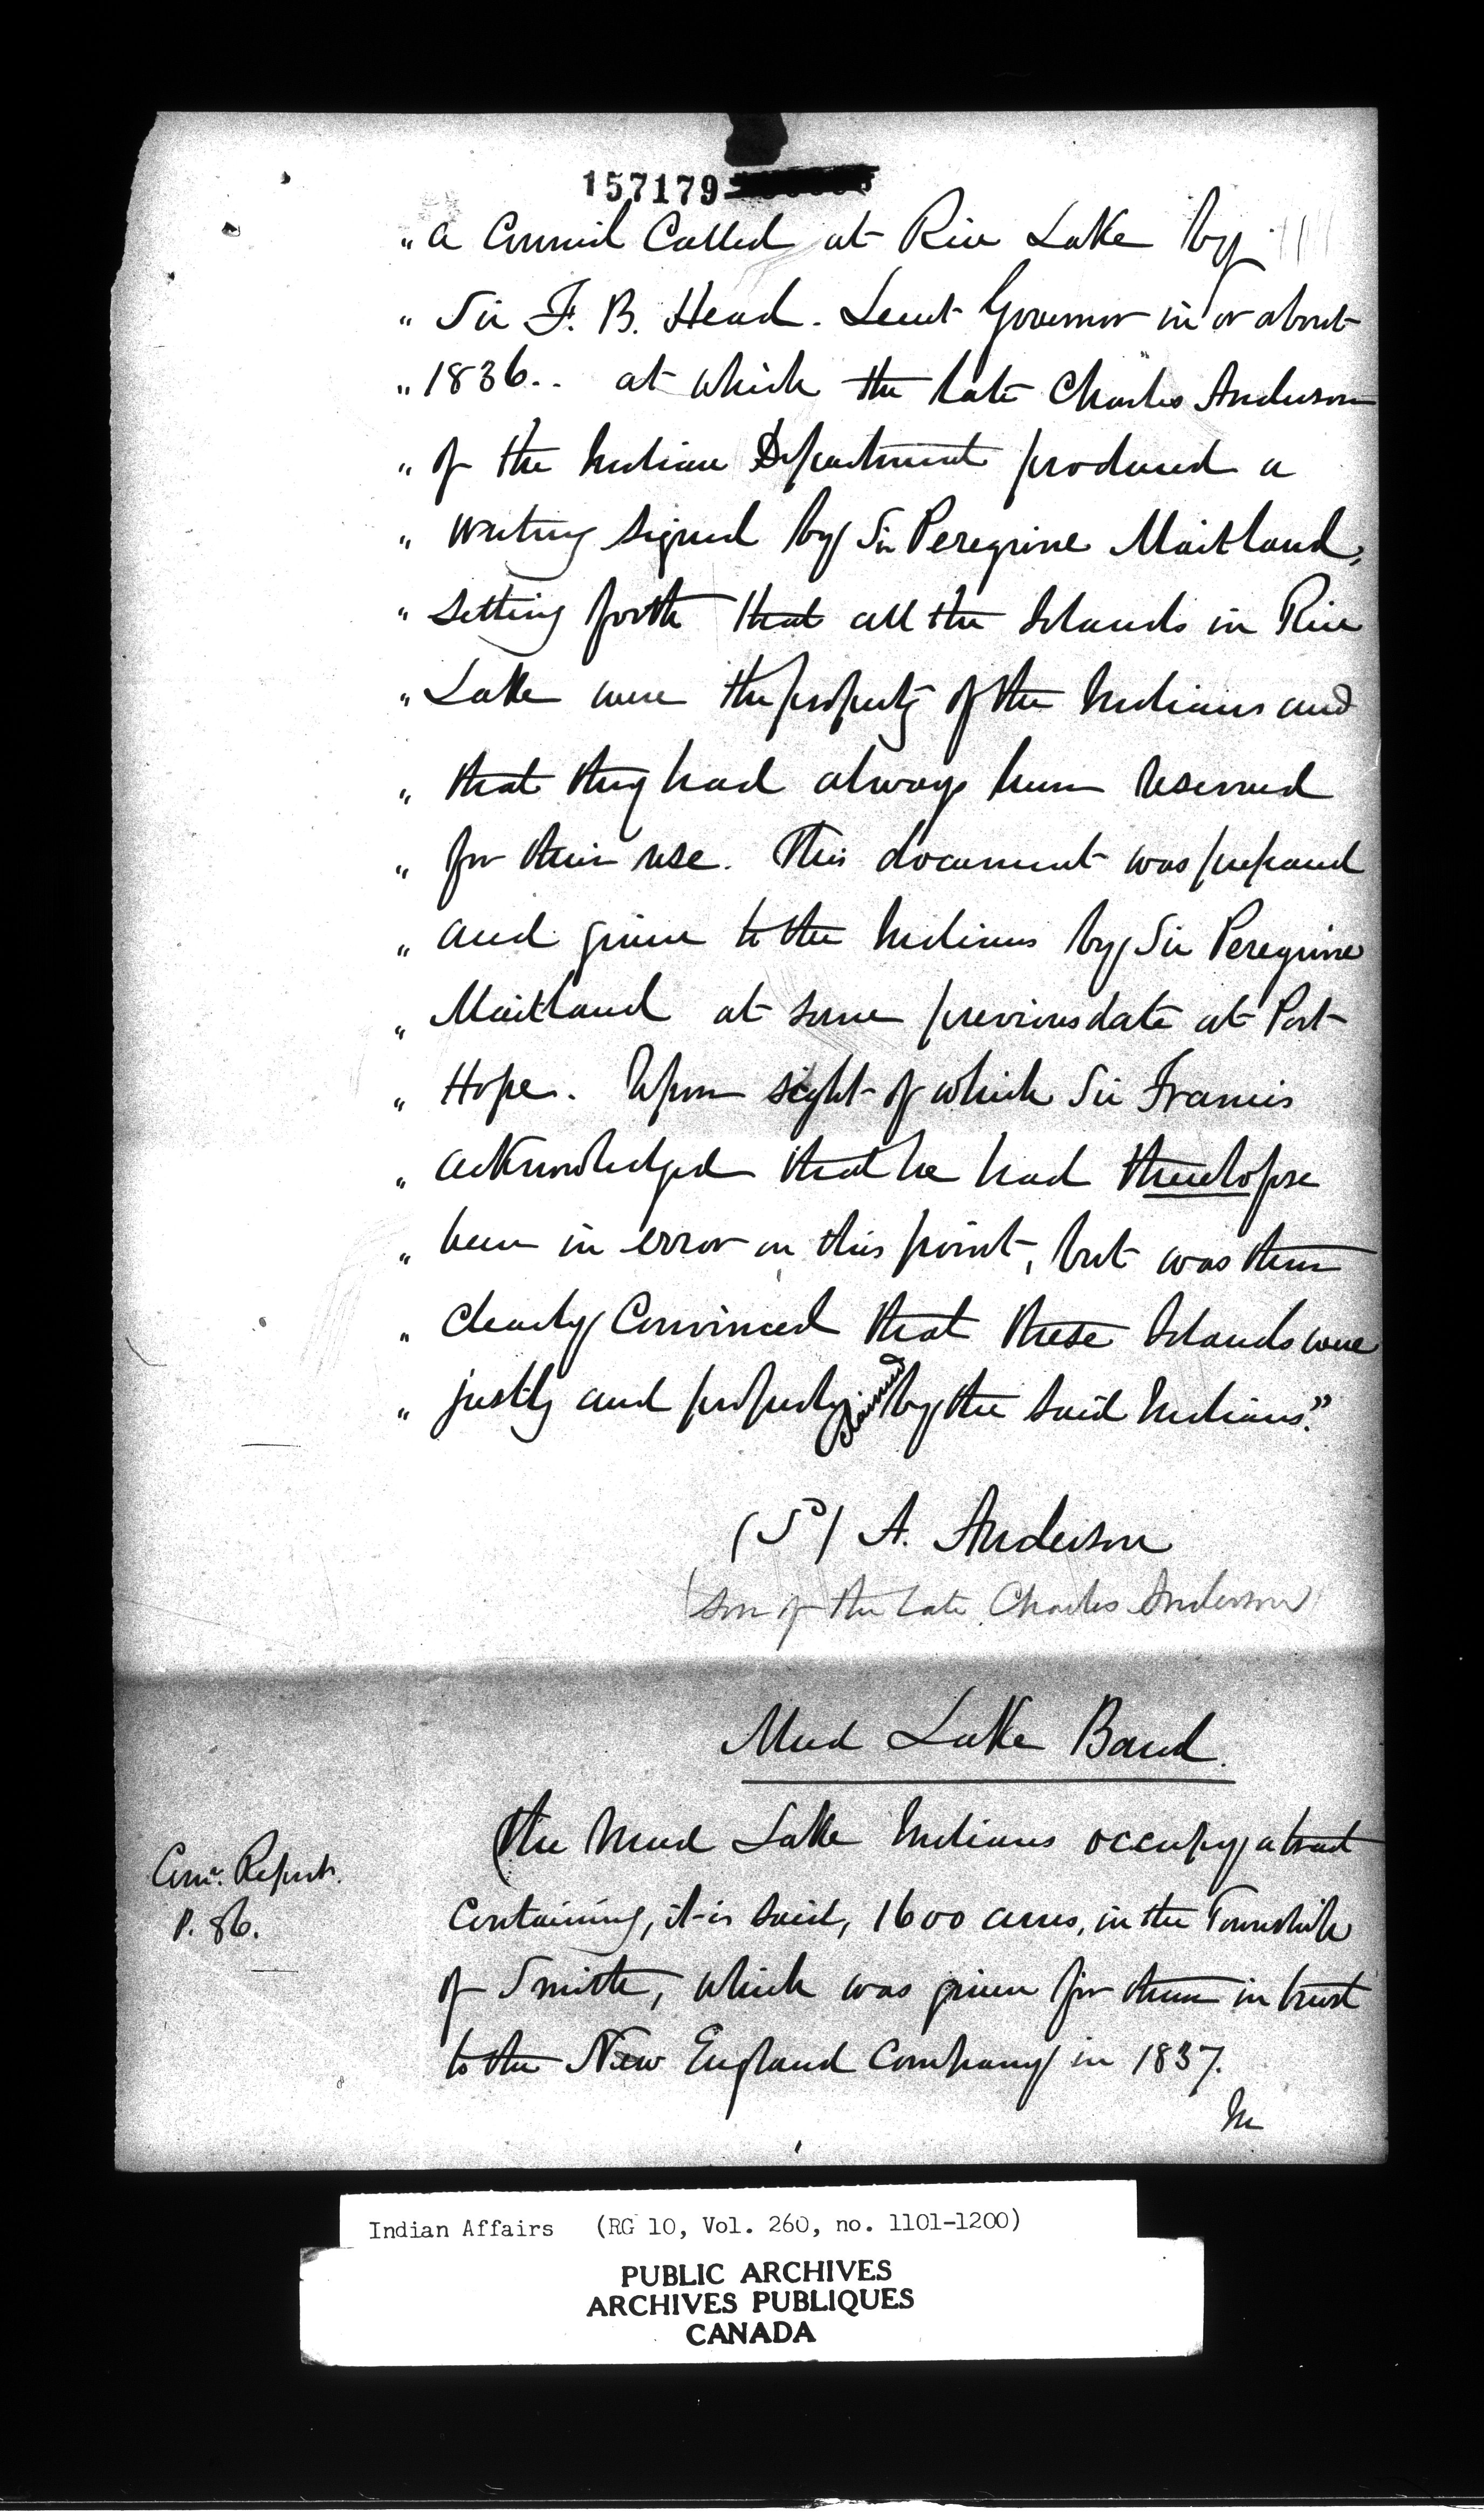 157179
" a Council Called at Rice Lake by
" Sir F. B. Head. Lieut Governor in or about
" 1836.. at which the late Charles Anderson
" of the Indian Department produced a
" writing signed by Sir Peregrine Maitland,
" setting forth that all the Islands in Rice
" Lake were the property of the Indians and
" that they had always been reserved
" for their use. This document was prepared
" and given to the Indians by Sir Peregrine
" Maitland at some previous date at Port
" Hope. Upon sight of which Sir Francis
" acknowledged that he had theretofore
" been in error on this point, but was then
" clearly Convinced that these Islands were
" justly and properly claimed by the said Indians."
(Sd) A. Anderson
(son of the late Charles Anderson)
Mud Lake Band.
The Mud Lake Indians occupy a tract
Comr. Report.
P. 86.
Containing, it is said, 1600 acres, in the Township
of Smith, which was given for them in trust
to the New England Company in 1837.
In
Indian Affairs (RG 10, Vol. 260, no. 1101-1200)
PUBLIC ARCHIVES
ARCHIVES PUBLIQUES
CANADA